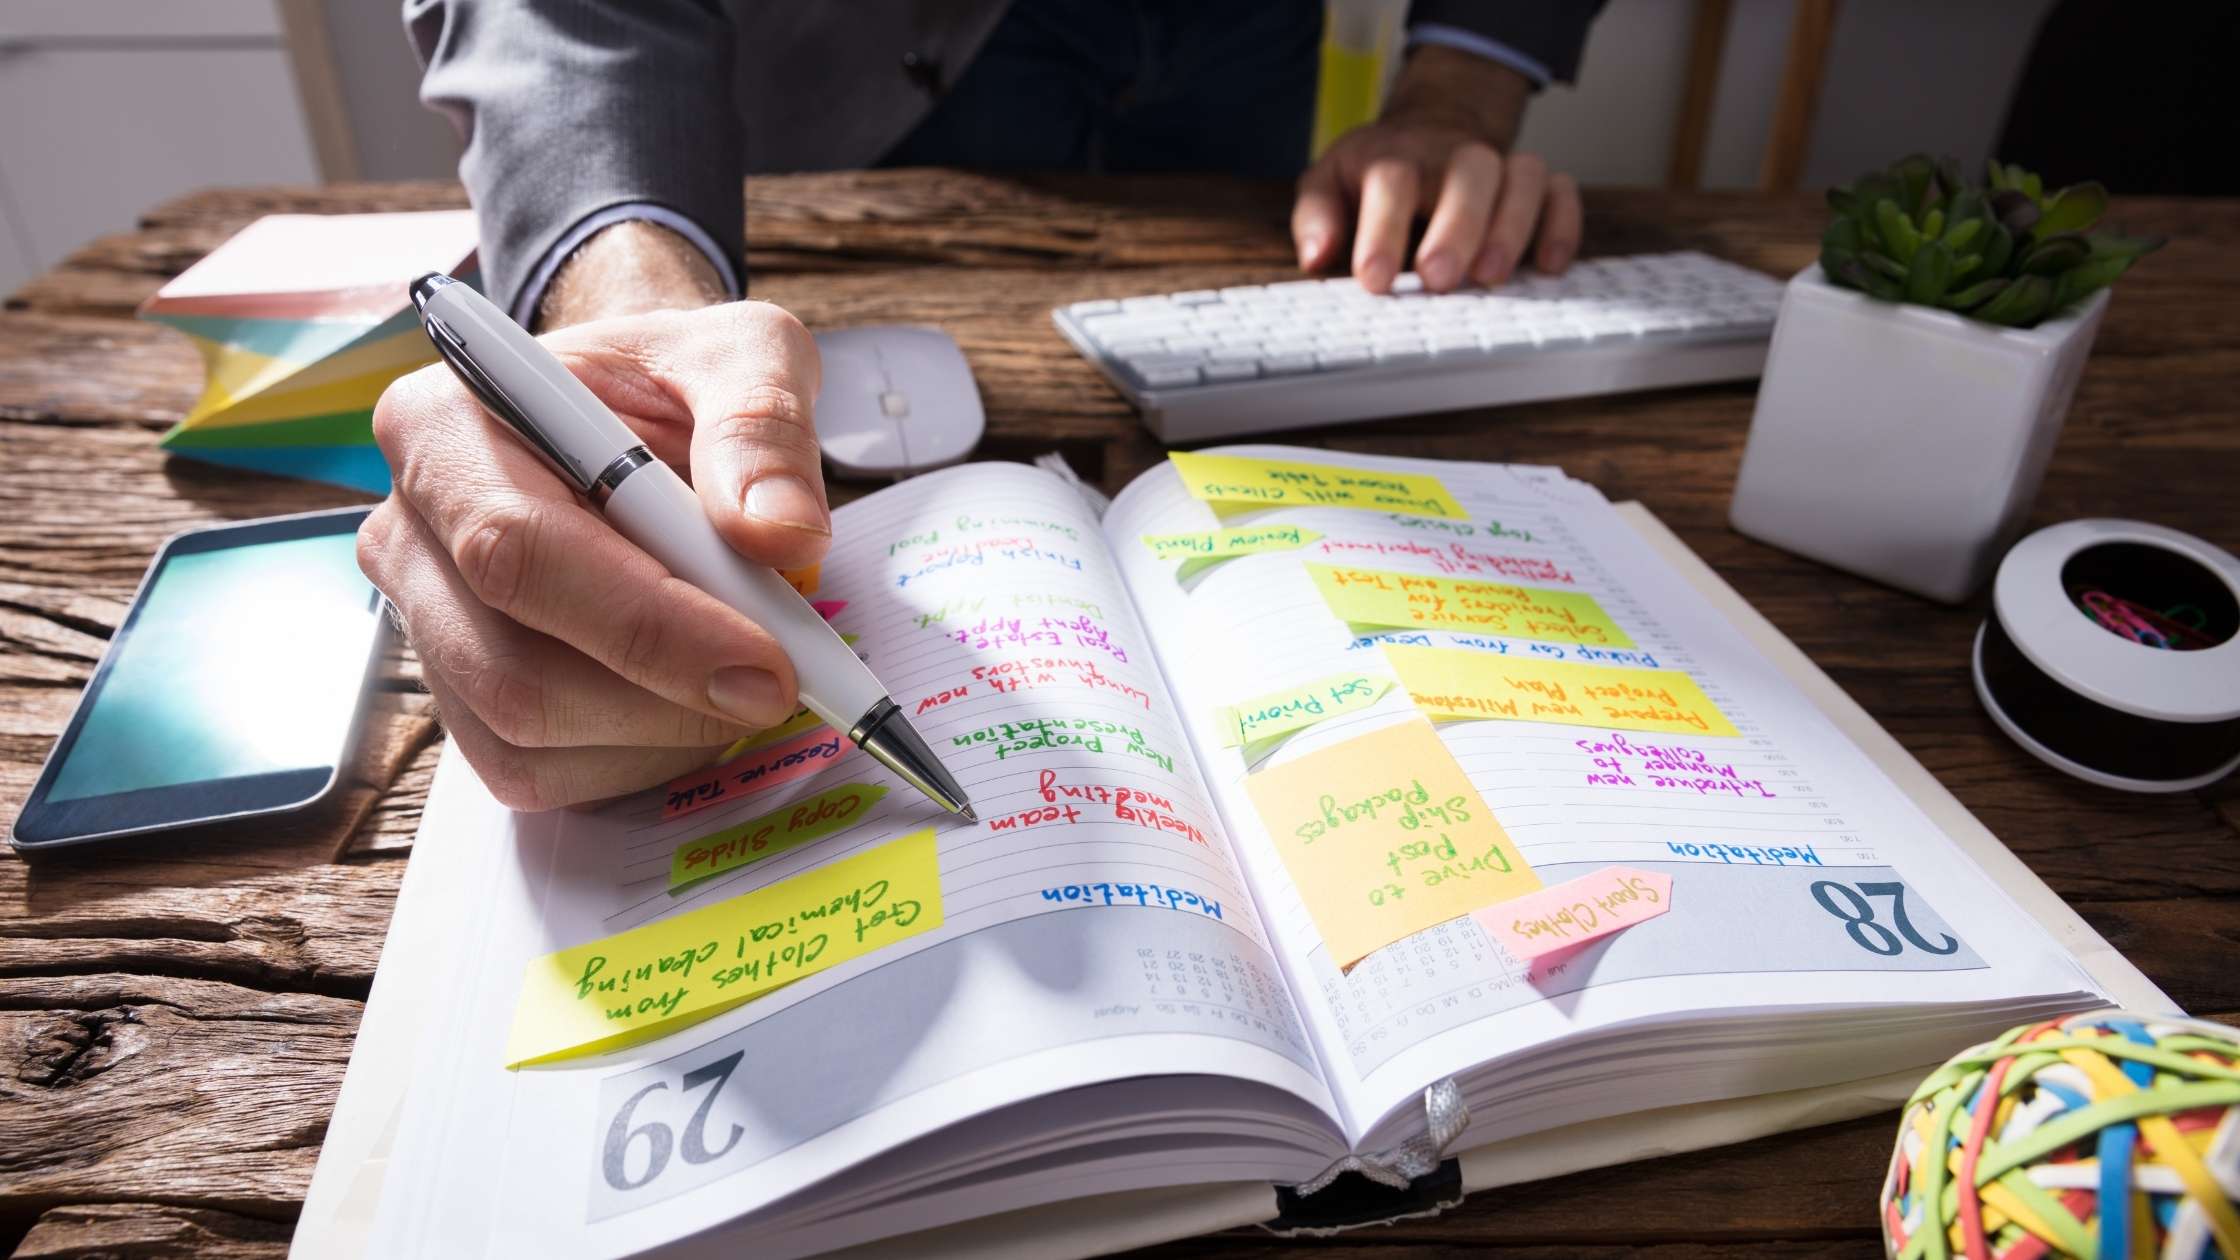 28
Meditation
Introduce new
Manager to
colleagues
Prepare new Milestone
Project Plan
Pickup Car from Dealer
Select Service
Providers for
Review and Test
Meeting with
Department
Yoga Classes
Dinner with Clients
Reserve Table
Review Plans
Set Priorit
Drive to
Post
Ship
Packages
Sport Clothes
Juli
29
August
Meditation
Weekly team
meeting
New Project
Presentation
Lunch with new
Investors
Real Estate
Agent Appt.
Dentist Appt.
Finish Report
Deadline
Swimming
Pool
Get Clothes from
Chemical cleaning
Copy Slides
Reserve Table